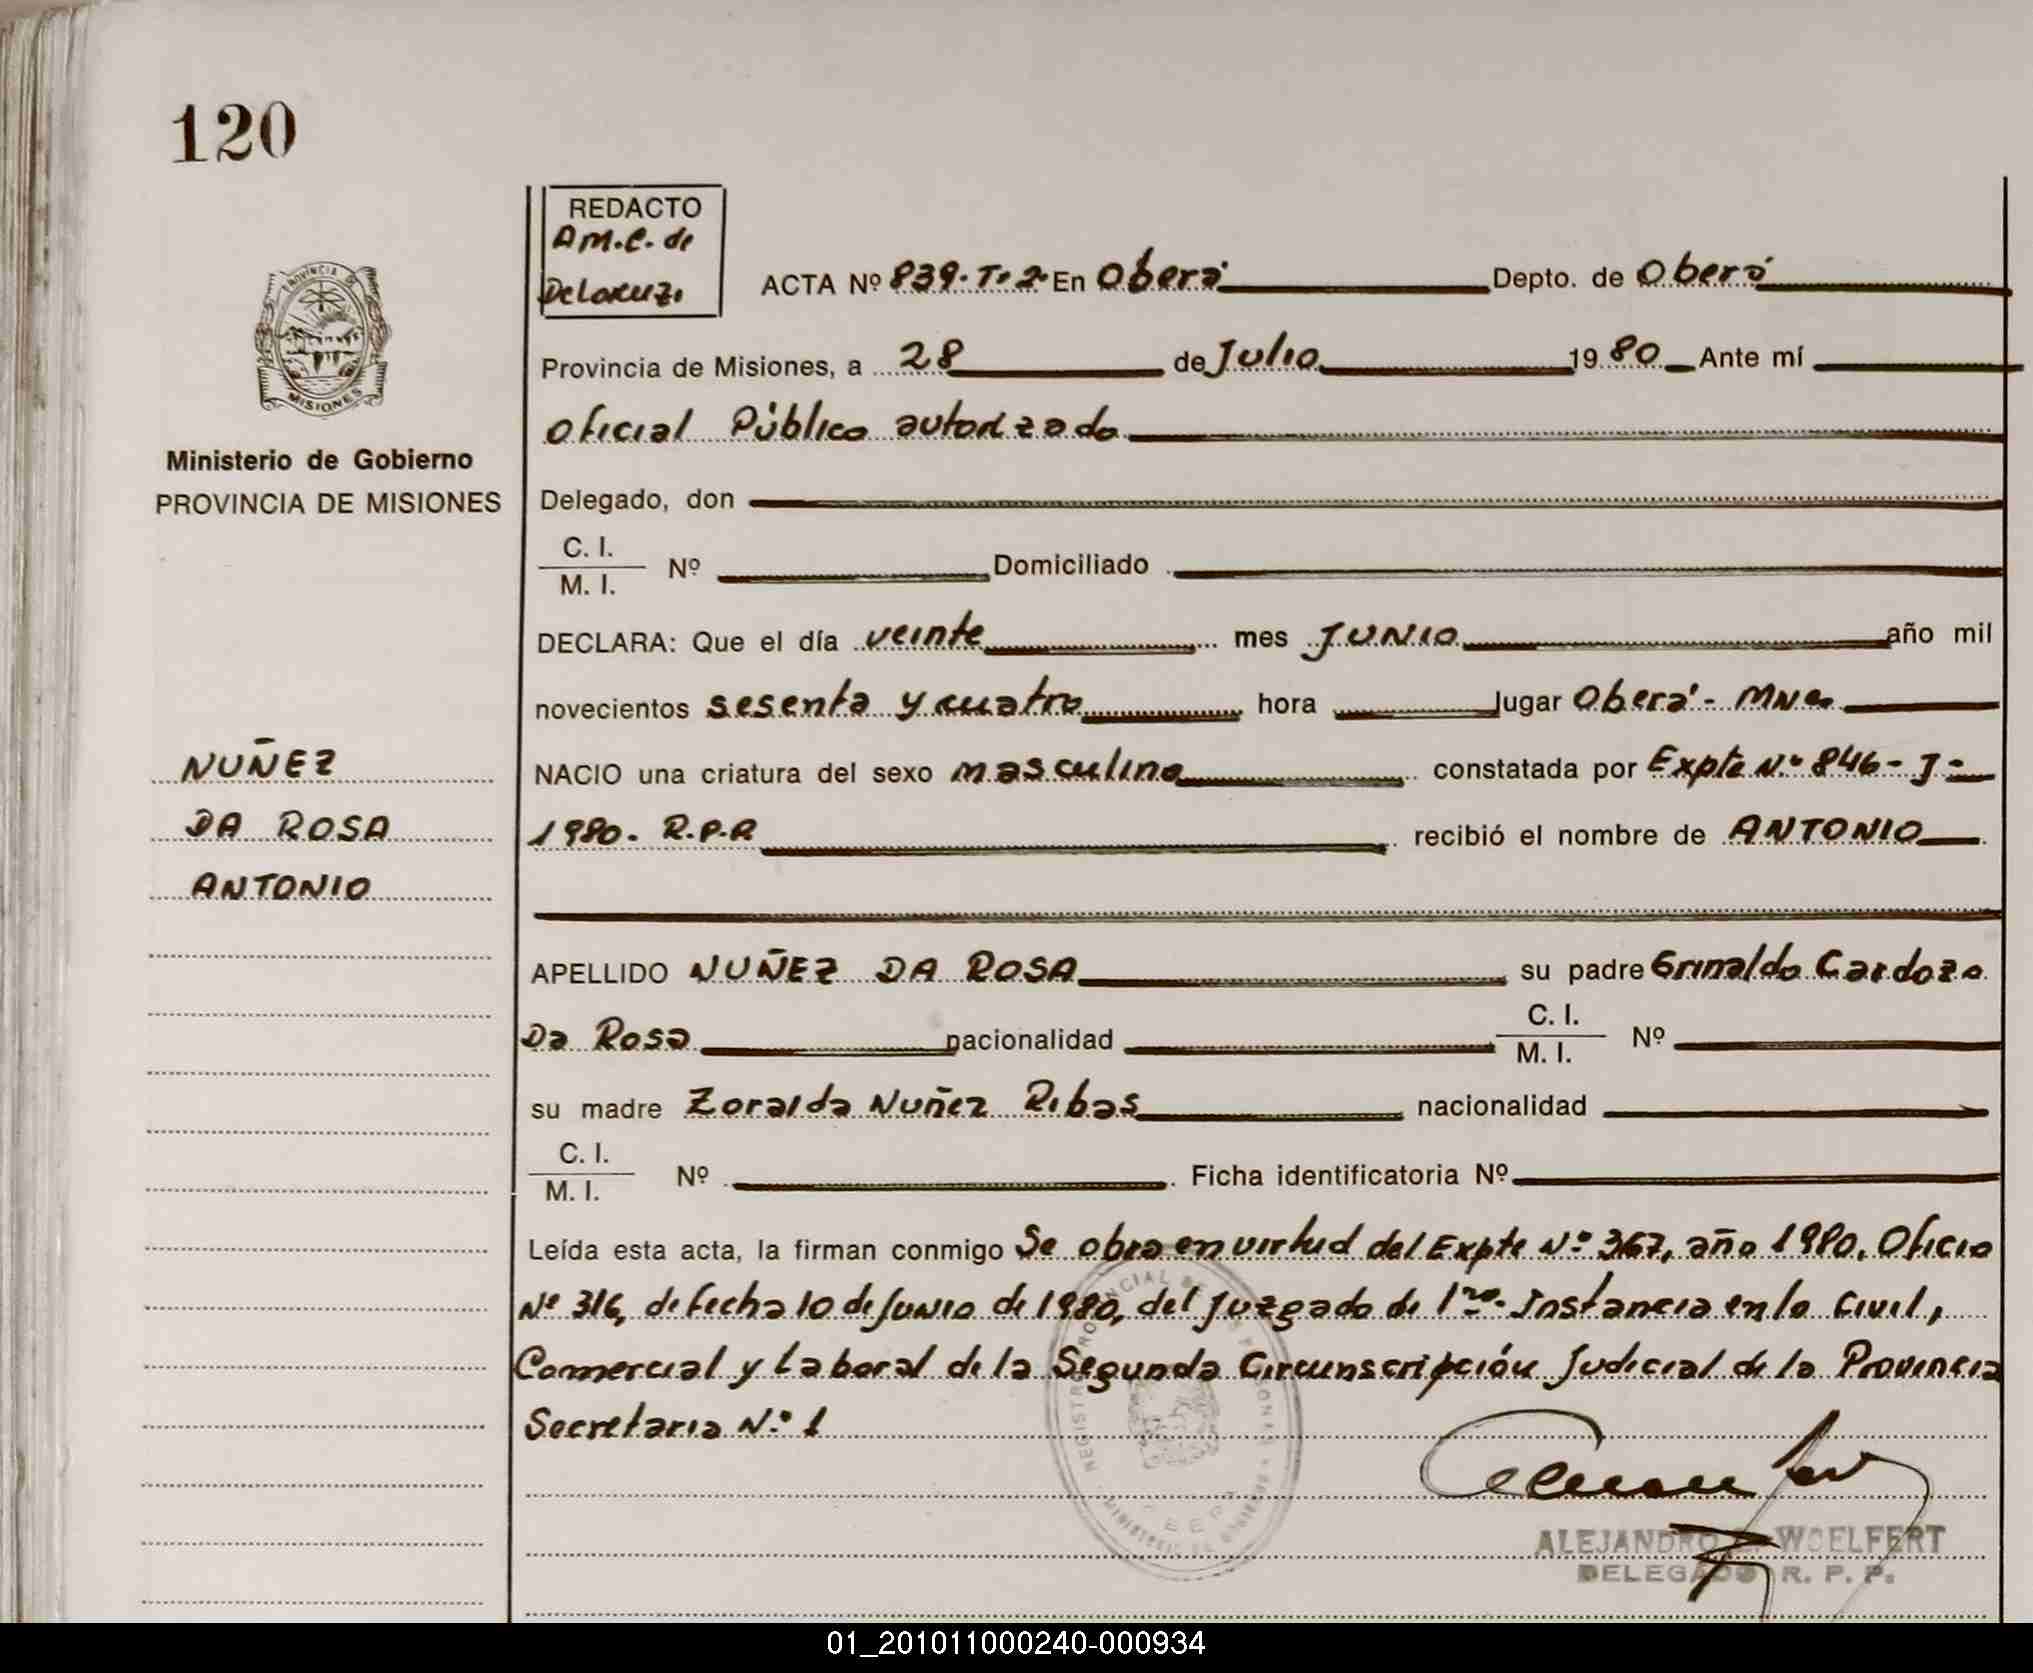 120
REDACTO
A M.C. de
Delacruz.
ACTA Nº 839. T. 2. En Oberá Depto. de Oberá
PROVINCIA DE
MISIONES
Provincia de Misiones, a 28 de Julio 1980 Ante mí
Oficial Público autorizado
Ministerio de Gobierno
PROVINCIA DE MISIONES
Delegado, don
C. I.
M. I. Nº Domiciliado
DECLARA: Que el día veinte mes JUNIO año mil
novecientos sesenta y cuatro hora lugar Oberá - Mnes
NUÑEZ
DA ROSA
ANTONIO
NACIO una criatura del sexo masculino constatada por Expte N.º 846 - J -
1980. R.P.P. recibió el nombre de ANTONIO
APELLIDO NUÑEZ DA ROSA su padre Grinaldo Cardozo
Da Rosa nacionalidad C. I. M. I. Nº
su madre Zoraida Nuñez Ribas nacionalidad
C. I.
M. I. Nº Ficha identificatoria Nº
Leída esta acta, la firman conmigo Se obra en virtud del Expte Nº 367, año 1980, Oficio
Nº 316, de fecha 10 de Junio de 1980, del Juzgado de 1ra. Instancia en lo Civil,
Comercial y Laboral de la Segunda Circunscripción Judicial de la Provincia
Secretaria N.º 1
ALEJANDRO WOELFERT
DELEGADO R. P. P.
01_201011000240-000934